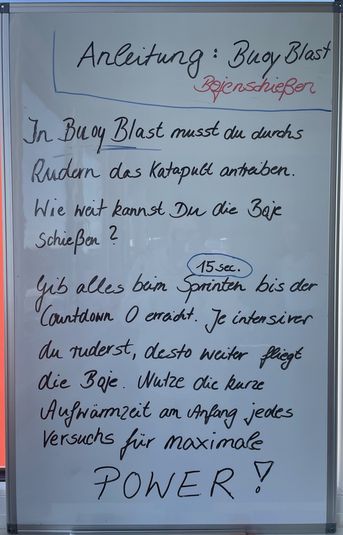 Anleitung: Buoy Blast
Bojenschießen
In Buoy Blast musst du durchs
Rudern das Katapult antreiben.
Wie weit kannst Du die Boje
schießen?
15 sec.
Gib alles beim Sprinten bis der
Countdown 0 erreicht. Je intensiver
du ruderst, desto weiter fliegt
die Boje. Nutze die kurze
Aufwärmzeit am Anfang jedes
Versuchs für maximale
POWER!